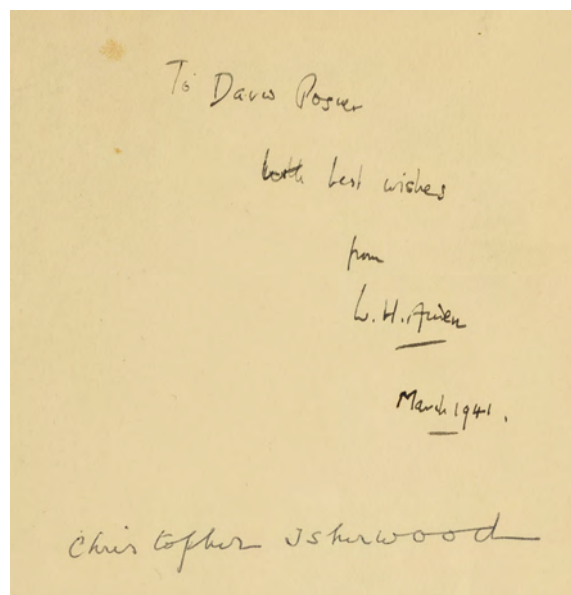 To David Posner
with best wishes
from
W. H. Auden
March 1941.
Christopher Isherwood